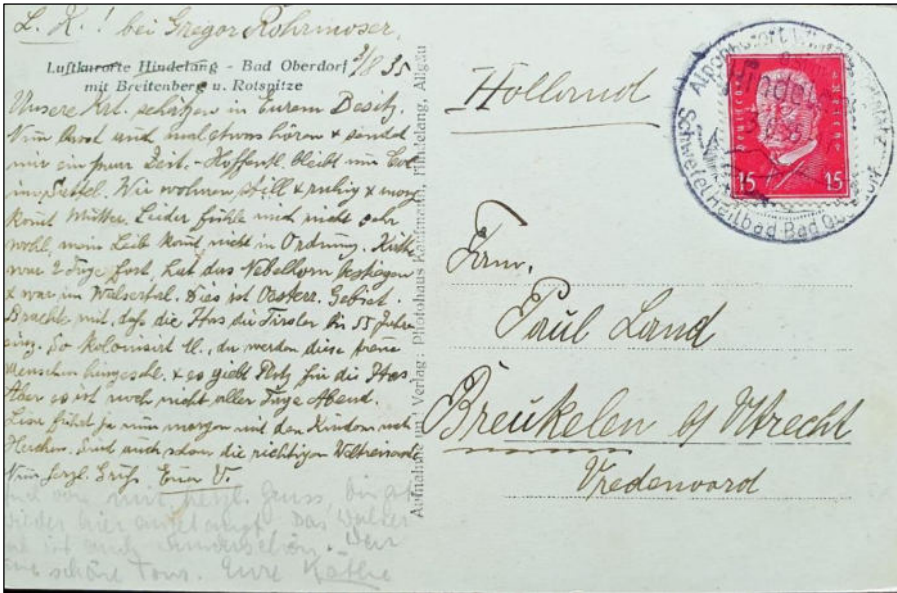 L. K.! bei Gregor Rohrmoser,
3/8 35
Luftkurorte Hindelang - Bad Oberdorf
mit Breitenberg u. Rotspitze
Unsere Krt. schätzen in Eurem Besitz.
Nun und mal etwas hören &
mir ein paar Zeit. - Hoffentl. bleibt nun
im Sattel. Wir wohnen still & ruhig & morg.
komt Mutter. Leider fühle mich nicht sehr
wohl, mein Leib komt nicht in Ordnung. Käthe
war 2 Tage fort, hat das Nebelhorn bestiegen
& war im Walsertal. Dies ist Oesterr. Gebiet.
Brachte mit, daß die Itas die Tiroler bis 55 Jahre
So kolonisirt M., da werden diese
Menschen & es giebt Platz für die Itas
Aber es ist noch nicht aller Tage Abend.
fährt ja nun morgen mit den Kindern nach
Sind auch schon die richtigen
Nun herzl. Grüß. Euer V.
mit herzl. Gruss, bin
wieder hier angelangt. Das Walser
ist auch wunderschön. War
eine schöne Tour. Eure Käthe
Aufnahme und Verlag: Photohaus Kaufmann, Hindelang, Allgäu
Holland
Deutsches Reich
15 15
Alpenkurort
Hindelang
Schwefel Heilbad Bad Oberdorf
Fam.
Paul Land
Breukelen b/ Utrecht
Vredenoord